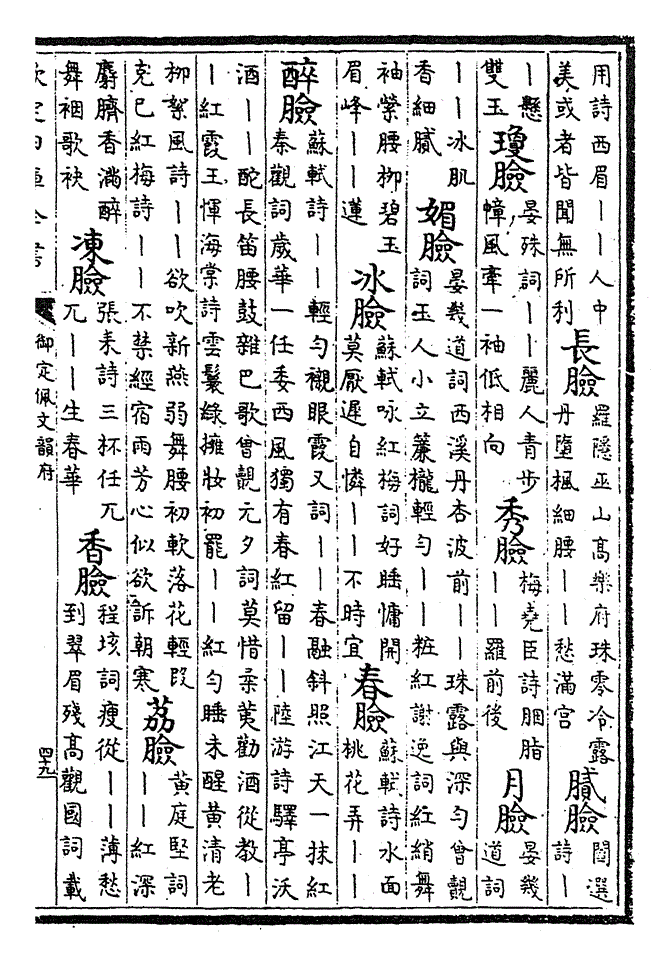 用詩西眉｜｜人中
美或者皆聞無所利
長臉
羅隱巫山高樂府珠零冷露
丹墮楓細腰｜｜愁滿宮
膩臉
閻選
詩｜
｜懸
雙玉
瓊臉
晏殊詞｜｜麗人青步
幛風牽一袖低相向
秀臉
梅堯臣詩胭脂
｜｜羅前後
月臉
晏幾
道詞
｜｜冰肌
香細膩
媚臉
晏幾道詞西溪丹杏波前｜｜珠露與深勻曾覿
詞玉人小立簾櫳輕勻｜｜粧紅謝逸詞紅綃舞
袖縈腰柳碧玉
眉峰｜｜蓮
冰臉
蘇軾咏紅梅詞好睡慵開
莫厭遲自憐｜｜不時宜
春臉
蘇軾詩水面
桃花弄｜｜
醉臉
蘇軾詩｜｜輕勻襯眼霞又詞｜｜春融斜照江天一抹紅
秦觀詞歲華一任委西風獨有春紅留｜｜陸游詩驛亭沃
酒｜｜酡長笛腰鼓雜巴歌曾覿元夕詞莫惜柔荑勸酒從教｜
｜紅霞王惲海棠詩雲鬟綠擁妝初罷｜｜紅勻睡未醒黃清老
柳絮風詩｜｜欲吹新燕弱舞腰初軟落花輕段
克已紅梅詩｜｜不禁經宿雨芳心似欲訴朝寒
荔臉
黃庭堅詞
｜｜紅深
麝臍香滿醉
舞裀歌袂
凍臉
張耒詩三杯任兀
兀｜｜生春華
香臉
程垓詞瘦從｜｜薄愁
到翠眉殘高觀國詞載
御定佩文韻府
四十九